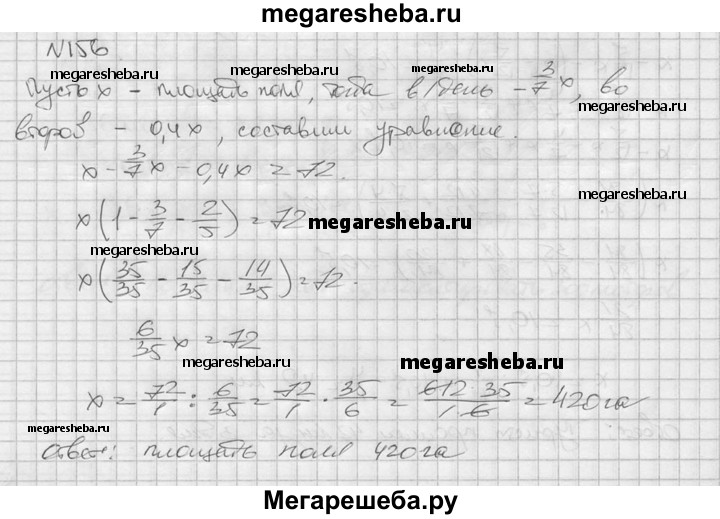 megaresheba.ru
№156
megaresheba.ru megaresheba.ru megaresheba.ru
Пусть x - площадь поля, тогда в 1 день - 3/7 x, во
второй - 0,4x, составим уравнение.
x - 3/7 x - 0,4x = 72.
megaresheba.ru
x(1 - 3/7 - 2/5) = 72
megaresheba.ru
megaresheba.ru
x(35/35 - 15/35 - 14/35) = 72.
6/35 x = 72
megaresheba.ru megaresheba.ru
x = 72/1 : 6/35 = 72/1 · 35/6 = 612·35/1·6 = 420га
megaresheba.ru
Ответ: площадь поля 420га
megaresheba.ru
Мегарешеба.ру